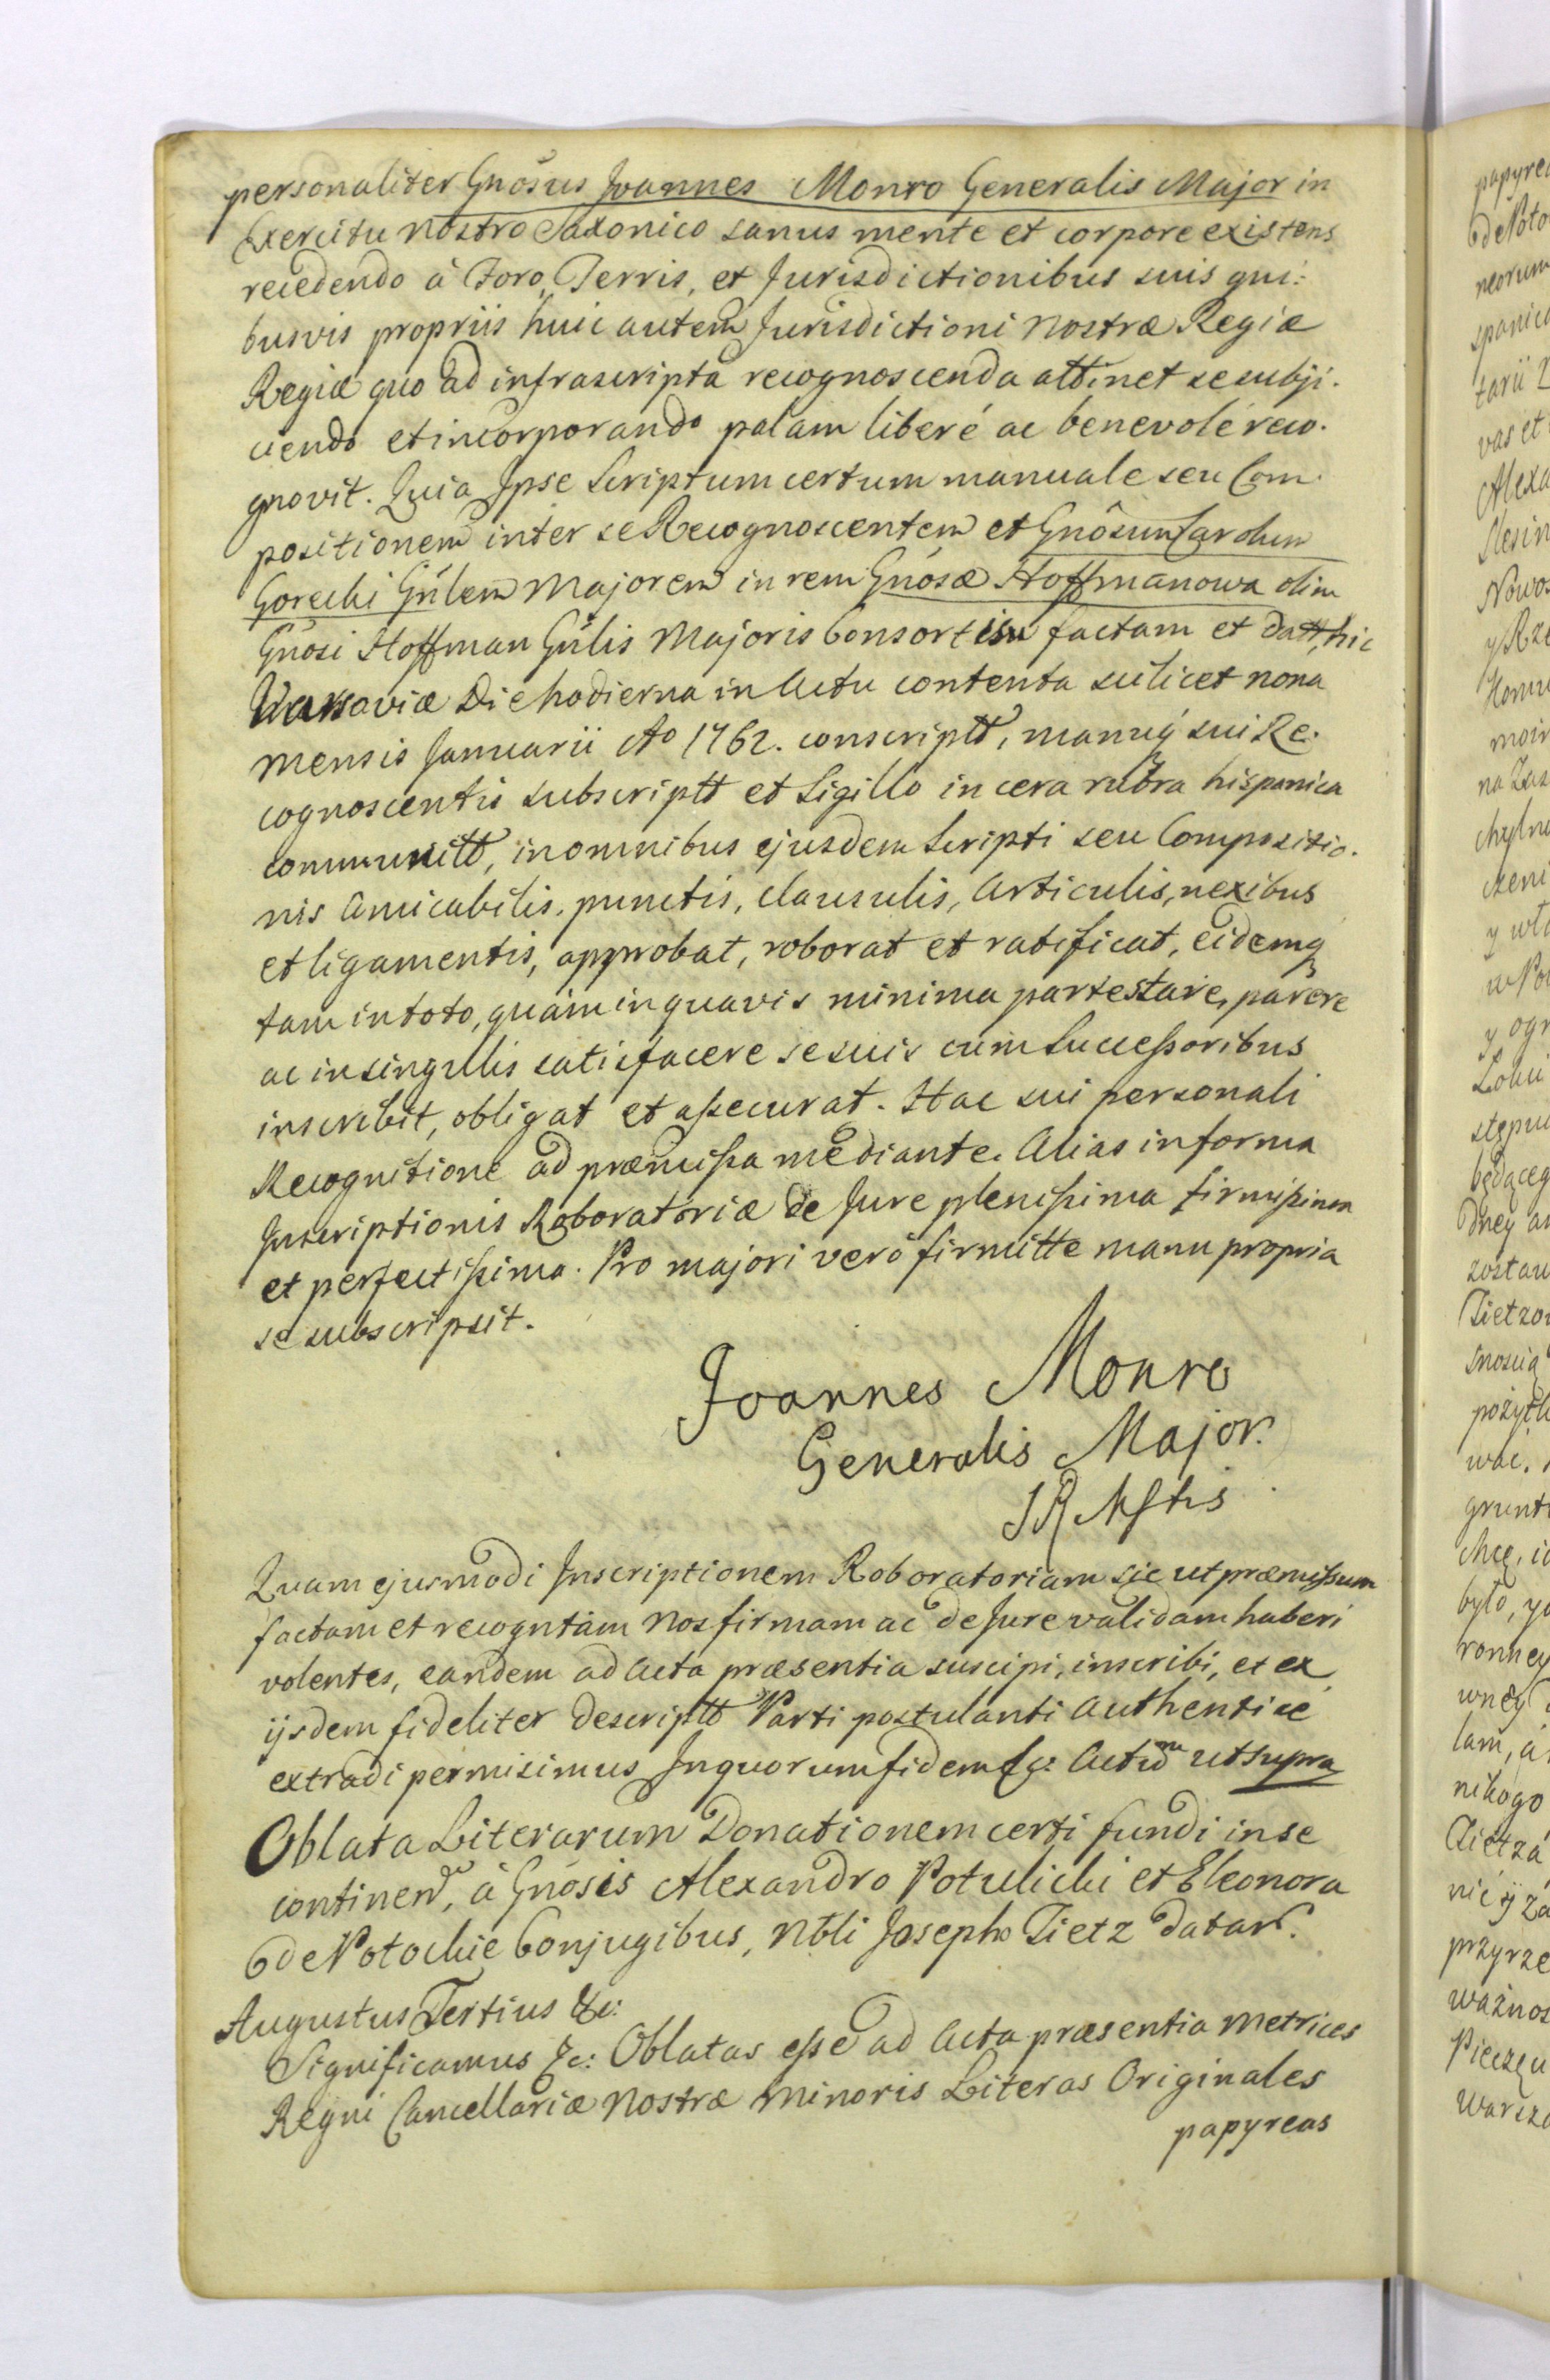 personaliter Gnôsus Joannes Monro Generalis Major in
Exercitu nostro Saxonico sanus mente et corpore existens
recedendo à Foro, Terris, et Jurisdictionibus suis qui:
busvis propriis huic autem Jurisdictioni nostræ Regiæ
Regiæ quo ad infrascripta recognoscenda attinet se subji.
ciendo et incorporando palam liberé ac benevolé reco.
gnovit. Quia Ipse Scriptum certum manuale seu Com.
positionem inter se Recognoscentem et Gnôsum Carolum
Gorecki Gńlem Majorem in rem Gnôsæ Hoffmanowa olim
Gnosi Hoffman Gńlis Majoris Consortem factam et datt, hic
Warsaviæ Die hodierna in Actu contenta scilicet nona
mensis Januarii Ao 1762. conscriptt, manuq́ sui Re.
cognoscentis subscriptt et Sigillo in cera rubra hispanica
communitt, in omnibus ejusdem Scripti seu Compositio.
nis Amicabilis, punctis, clausulis, Articulis, nexibus
et ligamentis, approbat, roborat et ratificat, eidemq
tam in toto, quám in quavis minima parte stare, parere
ac in singulis satisfacere se suis cum Successoribus
inscribit, obligat et assecurat. Hac sui personali
Recognitione ad præmissa mediante. Alias in forma
Inscriptionis Roboratoriæ de Jure plenissima firmissima
et perfectissima. Pro majori veró firmitte manu propria
se subscripsit.
Joannes Monro
Generalis Major.
Quam ejusmodi Inscriptionem Roboratoriam sic ut præmissum
factam et recogntam nos firmam ac de Jure validam haberi
volentes, eandem ad Acta præsentia suscipi, inscribi, et ex
ijsdem fideliter descriptt Parti postulanti Authenticé
extradi permisimus In quorum fidem &c: Actum ut supra
Oblata Literarum Donationem certi fundi in se
continen, à Gnôsis Alexandro Potulicki et Eleonora
de Potockie Conjugibus, Nbli Josepho Tietz datar.
Augustus Tertius &c:
Significamus &c: Oblatas esse ad Acta præsentia Metrices
Regni Cancellariæ Nostræ Minoris Literas Originales
papyreas